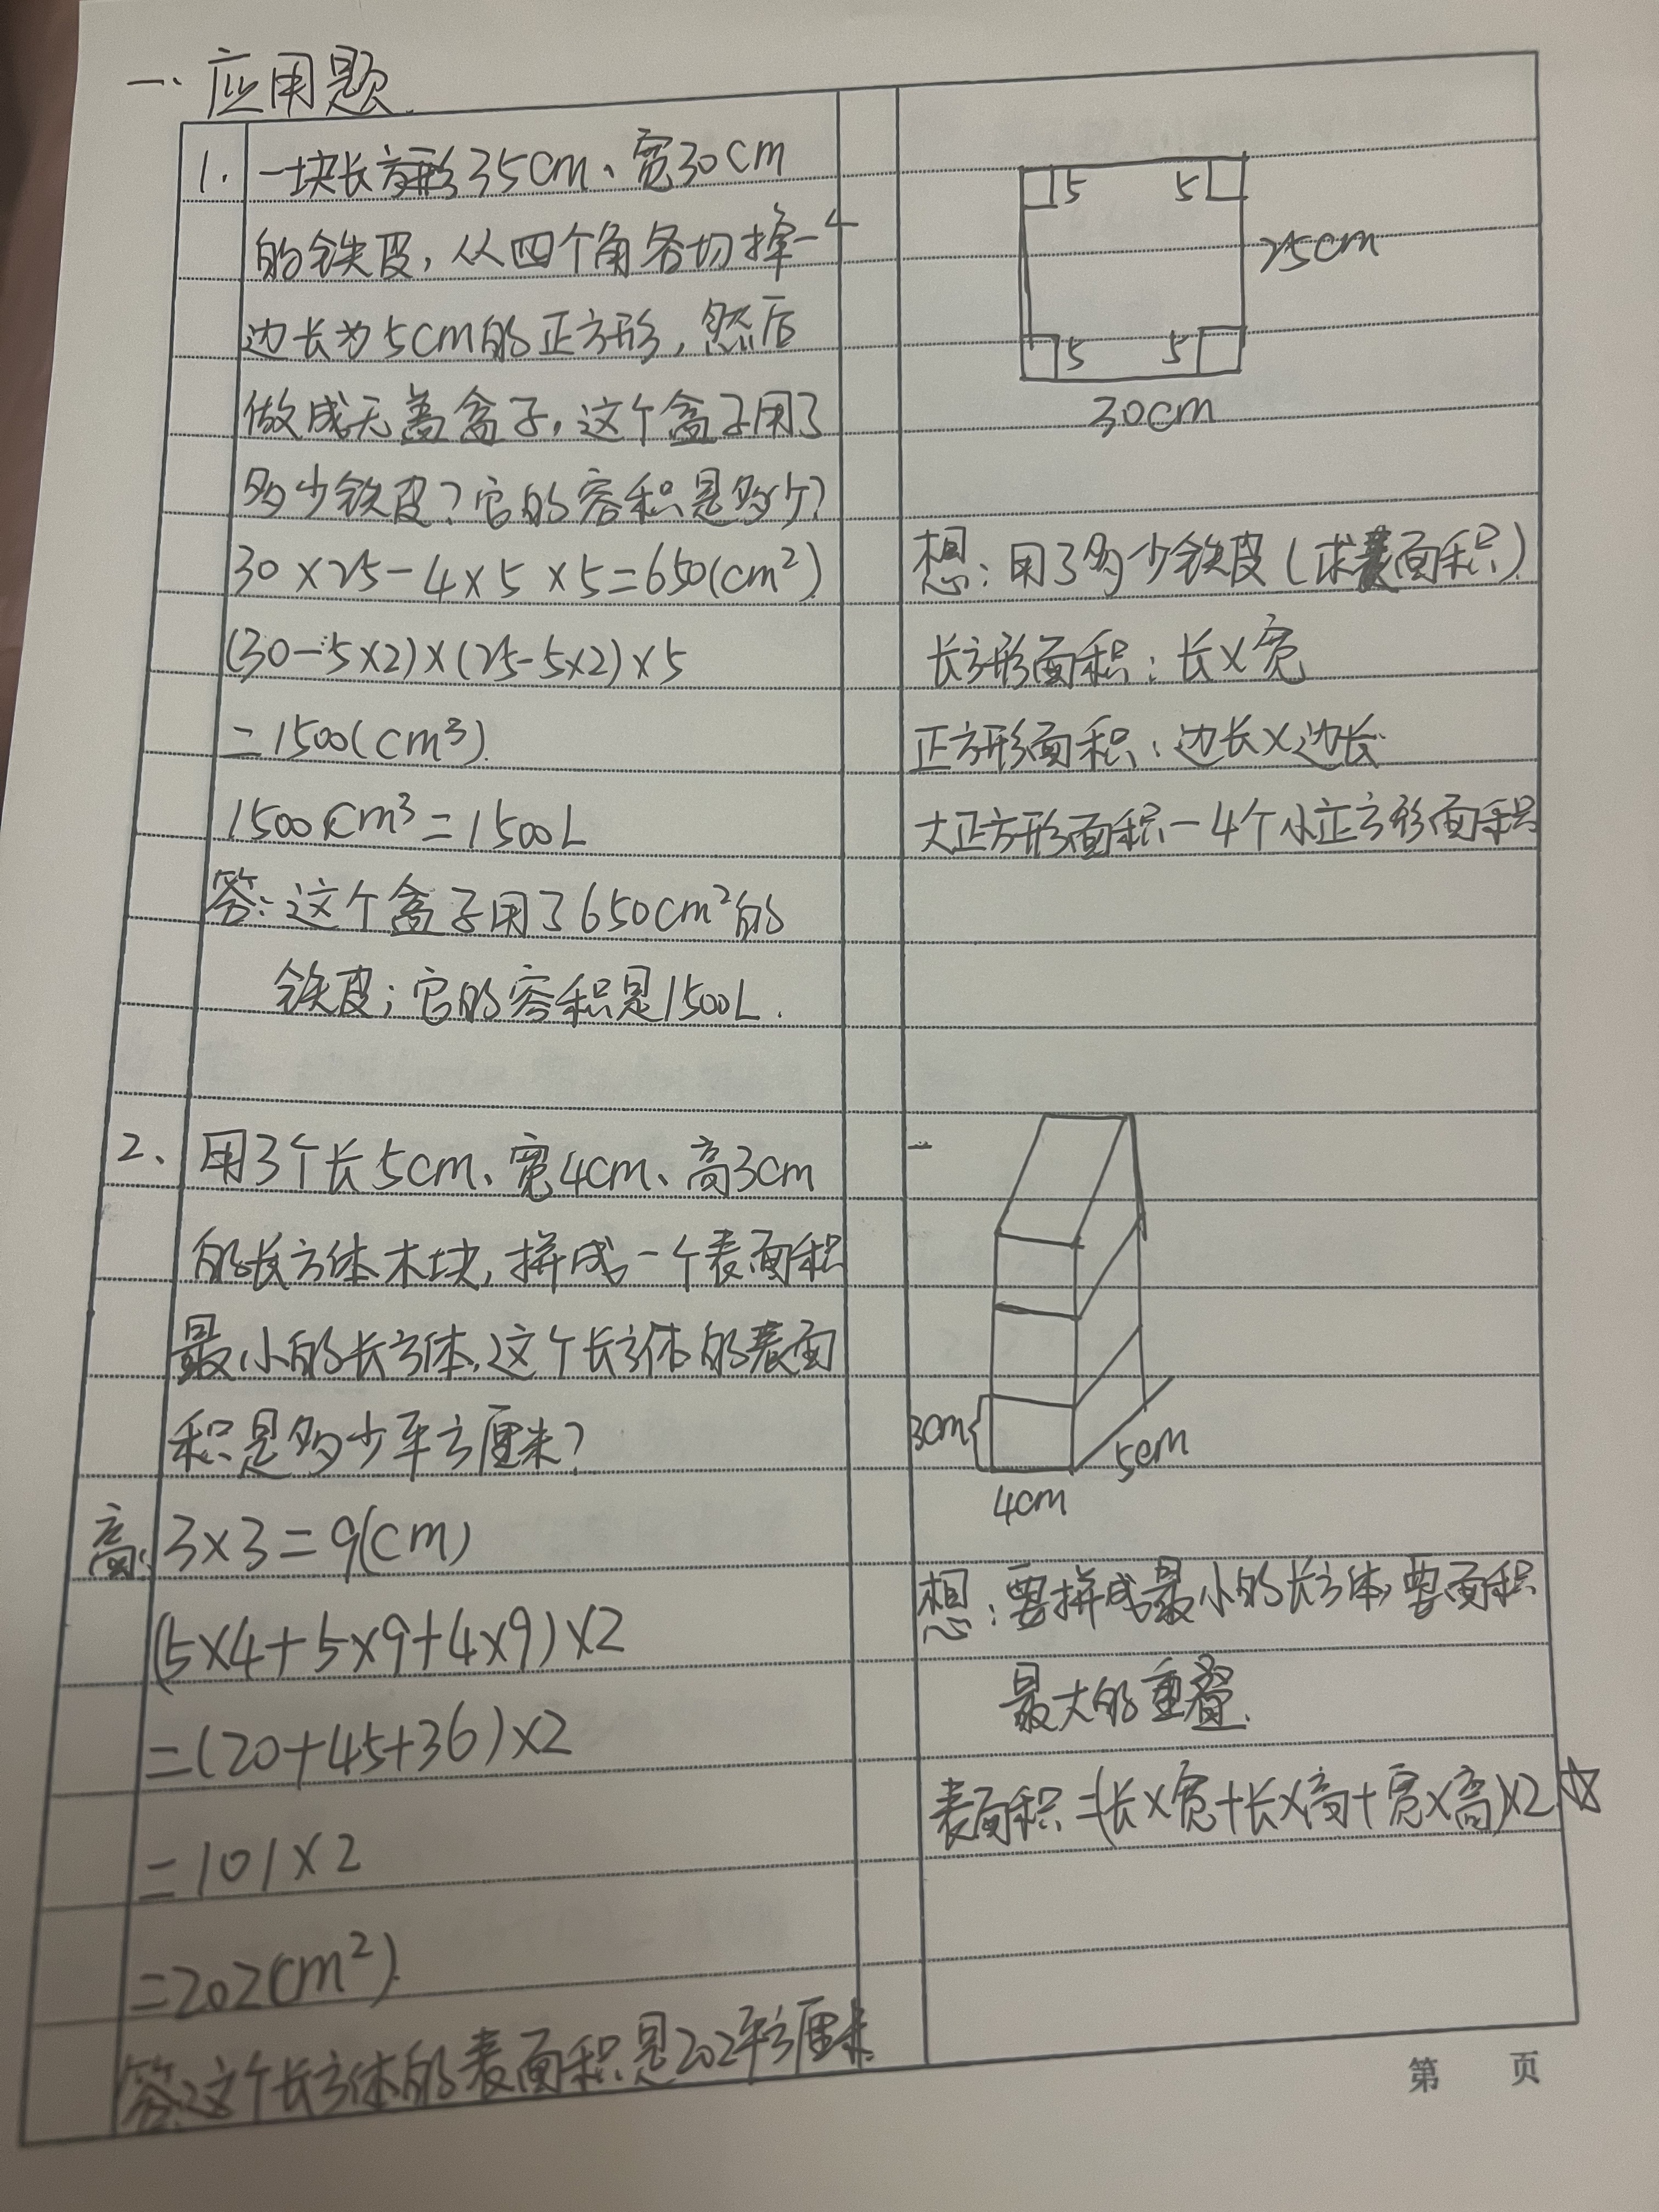 一、应用题.
1. 一块长方形35cm、宽30cm
的铁皮,从四个角各切掉一个
边长为5cm的正方形,然后
做成无盖盒子,这个盒子用了
多少铁皮?它的容积是多少?
30×25-4×5×5=650(cm²)
(30-5×2)×(25-5×2)×5
=1500(cm³).
1500cm³=1500L
答:这个盒子用了650cm²的
铁皮;它的容积是1500L.
5 5
25cm
5 5
30cm
想:用了多少铁皮(求表面积)
长方形面积:长×宽
正方形面积:边长×边长
大正方形面积-4个小正方形面积
2、用3个长5cm、宽4cm、高3cm
的长方体木块,拼成一个表面积
最小的长方体,这个长方体的表面
积是多少平方厘米?
高:3×3=9(cm)
(5×4+5×9+4×9)×2
=(20+45+36)×2
=101×2
=202(cm²).
答:这个长方体的表面积是202平方厘米.
3cm
5cm
4cm
想:要拼成最小的长方体,要面积
最大的重叠.
表面积=(长×宽+长×高+宽×高)×2☆
第 页